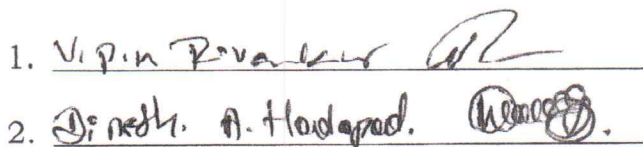 1. Vipin Revankar
2. Dinesh. A. Hadapad.